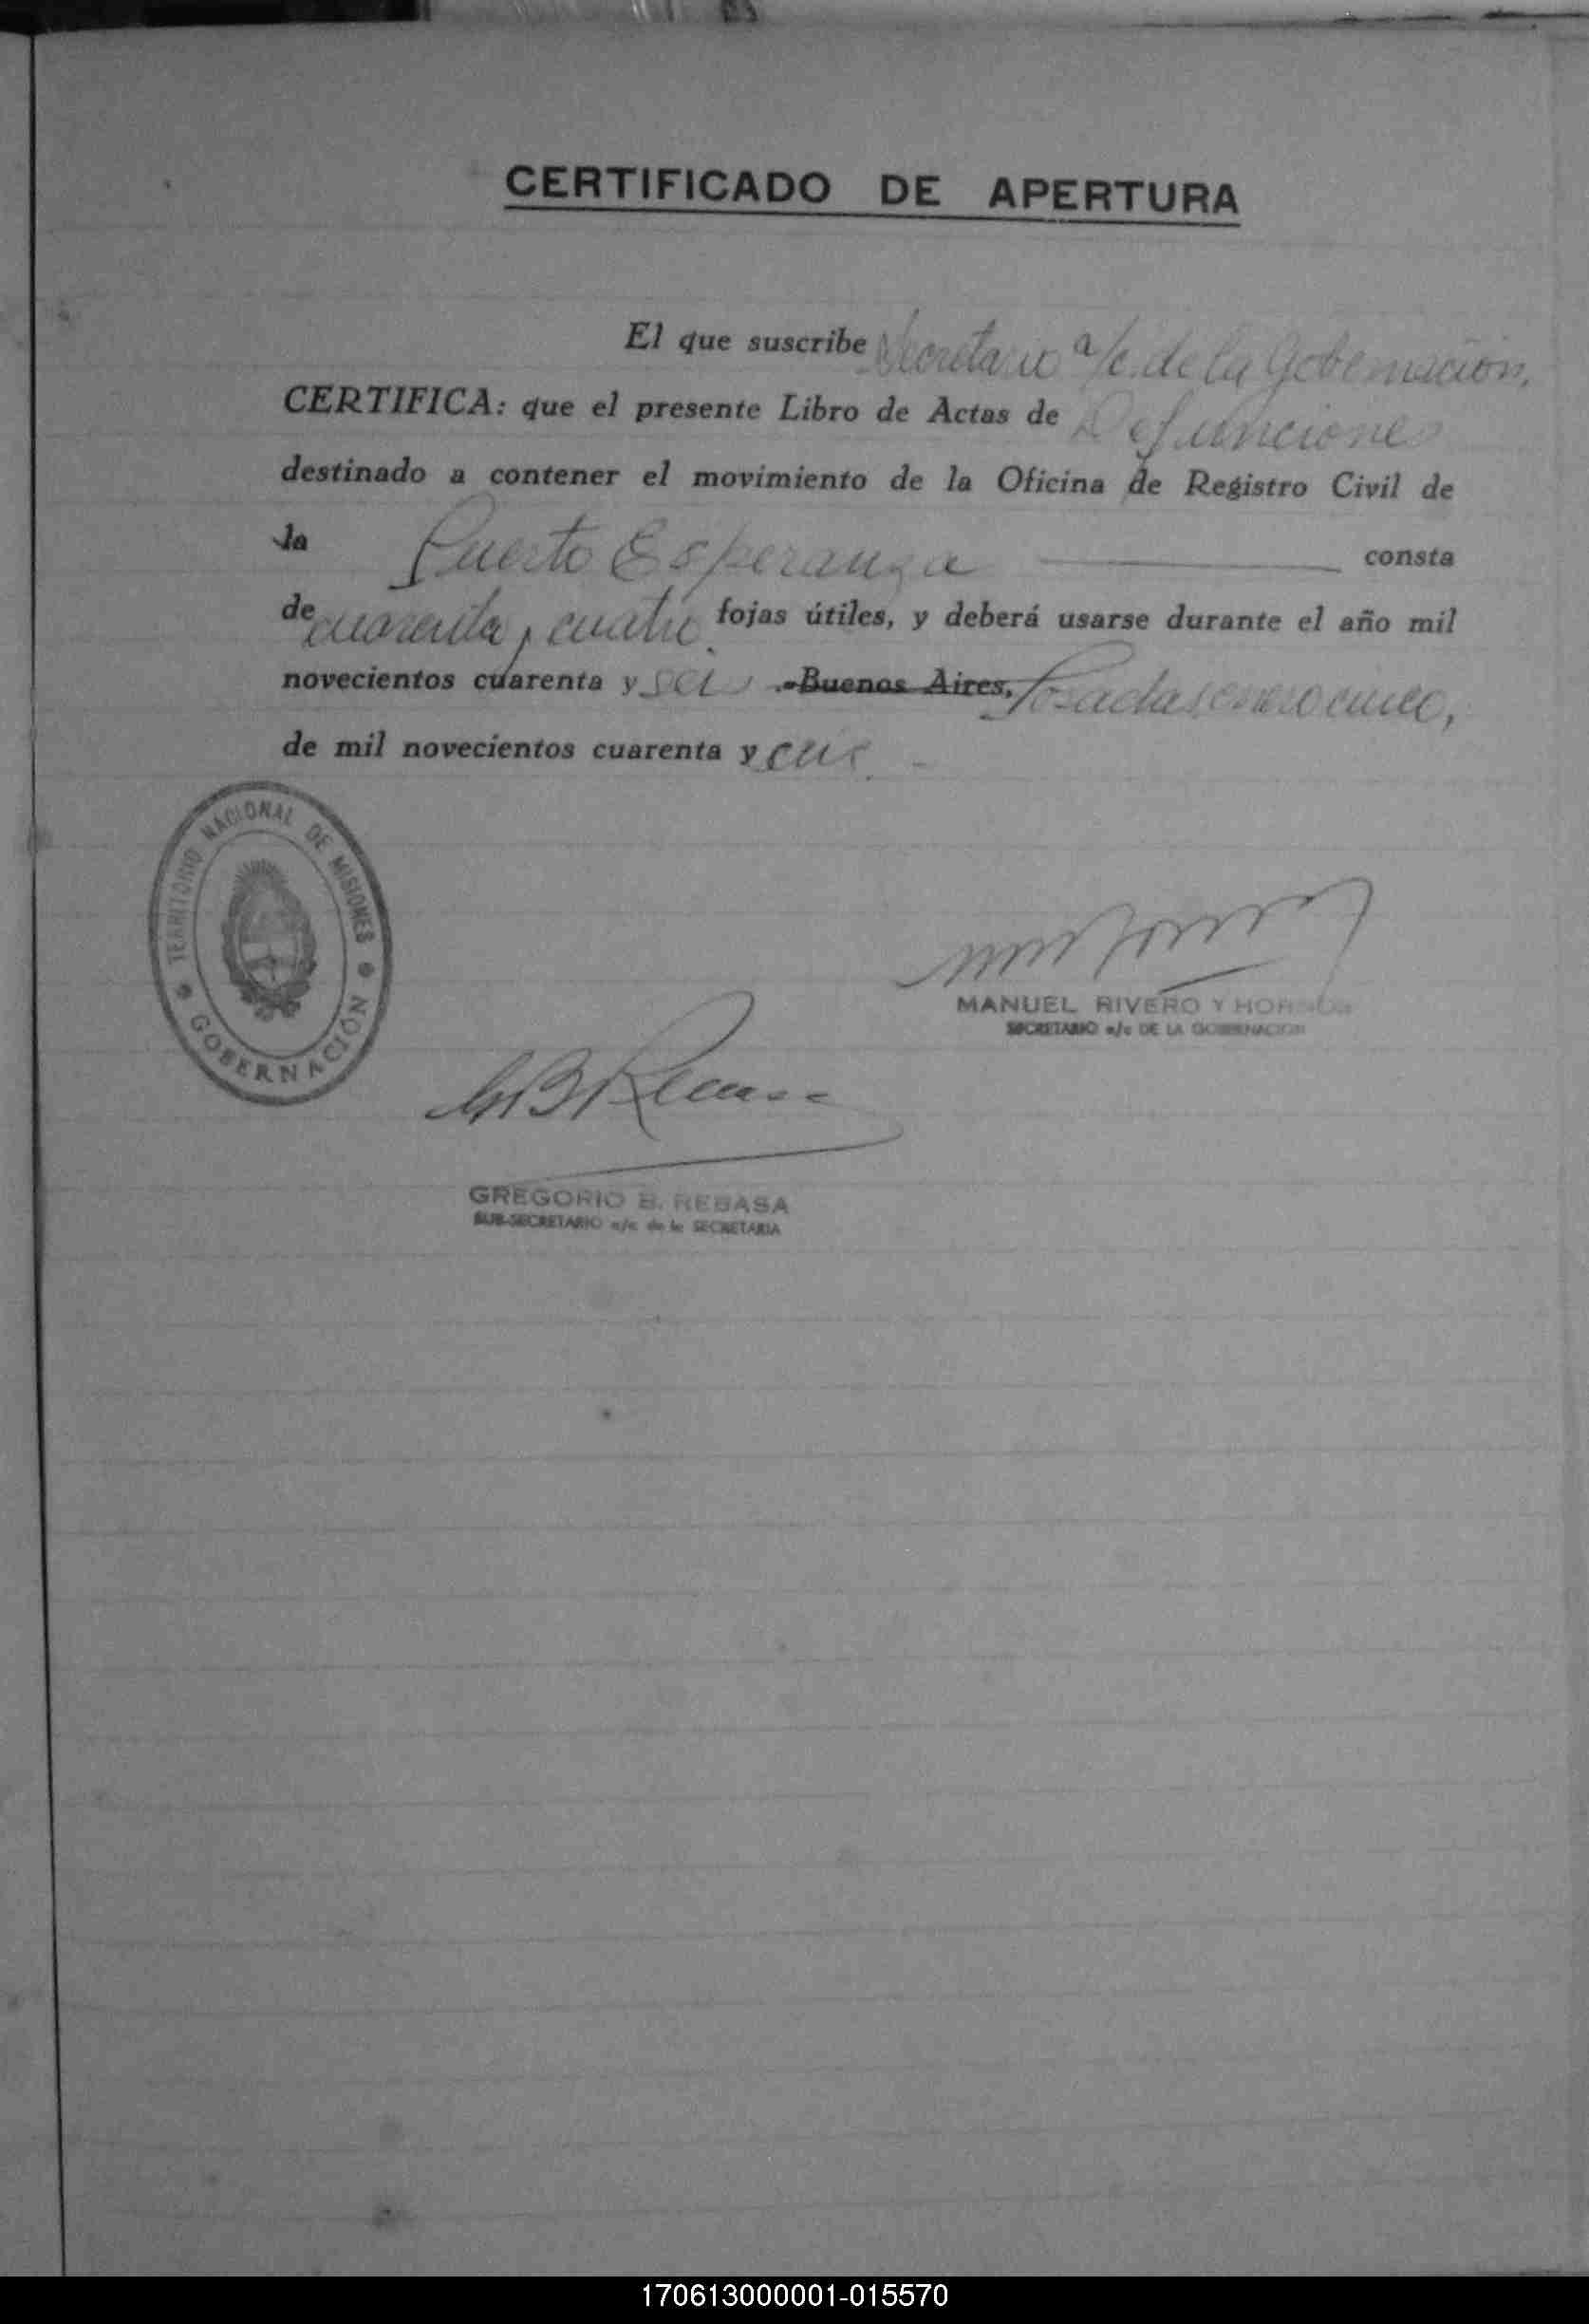 CERTIFICADO DE APERTURA
El que suscribe Secretario a/c. de la Gobernación,
CERTIFICA: que el presente Libro de Actas de Defunciones
destinado a contener el movimiento de la Oficina de Registro Civil de
la Puerto Esperanza consta
de cuarenta y cuatro fojas útiles, y deberá usarse durante el año mil
novecientos cuarenta y seis .-Buenos Aires, Posadas, enero cinco,
de mil novecientos cuarenta y seis.-
TERRITORIO NACIONAL DE MISIONES
GOBERNACIÓN
MANUEL RIVERO Y
SECRETARIO a/c DE LA GOBERNACION
GREGORIO B. REBASA
SUB-SECRETARIO a/c de la SECRETARIA
170613000001-015570